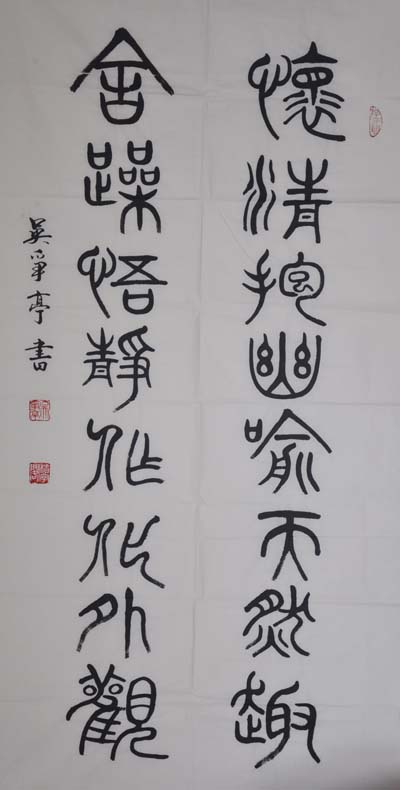 懷清抱幽喻天然趣
舍躁悟靜作化外觀
吳爭亭書